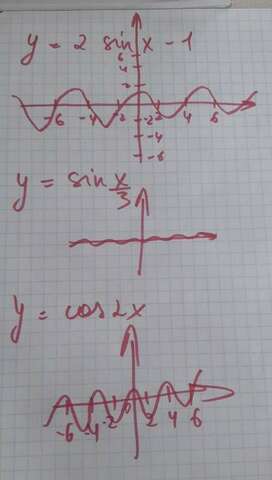 y = 2 sin x - 1
6
4
2
-6 -4 -2 2 4 6
-2
-4
-6
y = sin x/3
y = cos 2x
-6 -4 -2 2 4 6